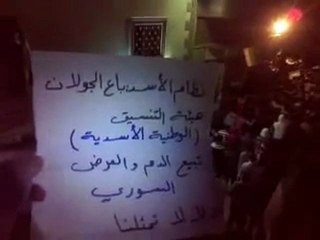 نظام الأسد باع الجولان
هيئة التنسيق
(الوطنية الأسدية)
تبيع الدم والعرض
السوري
لا لا تمثلنا